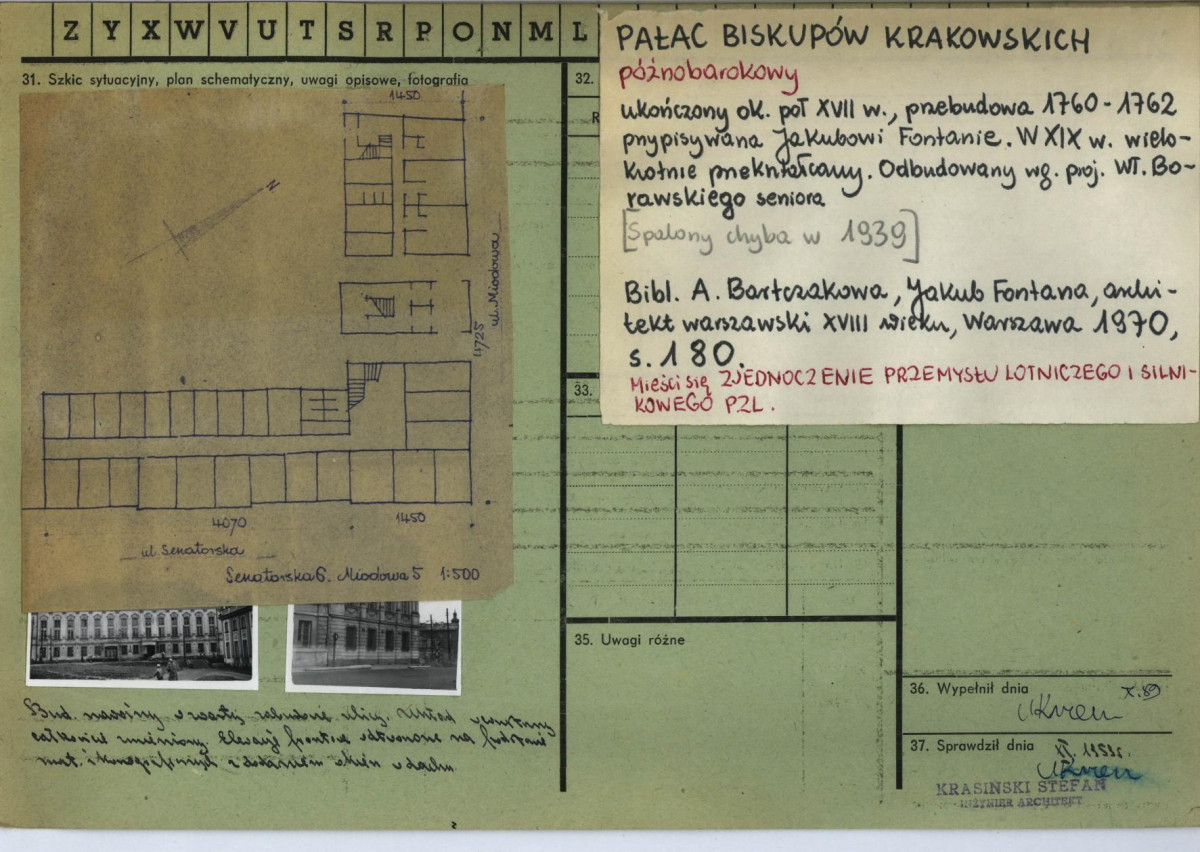 Z Y X W V U T S R P O N M L
31. Szkic sytuacyjny, plan schematyczny, uwagi opisowe, fotografia
1450
N
ul. Miodowa
4725
4070
1450
ul. Senatorska
Senatorska 6. Miodowa 5 1:500
Bud. narożny w zwartej zabudowie ulicy. Układ
całkowicie zmieniony. Elewacje frontowe odtworzone na podstawie
mat. ikonograficznych z dodaniem okien
32.
R
PAŁAC BISKUPÓW KRAKOWSKICH
późnobarokowy
ukończony ok. poł XVII w., przebudowa 1760-1762
przypisywana Jakubowi Fontanie. W XIX w. wielo-
krotnie przekształcany. Odbudowany wg. proj. Wł. Bo-
rawskiego seniora
[Spalony chyba w 1939]
Bibl. A. Bartczakowa, Jakub Fontana, archi-
tekt warszawski XVIII wieku, Warszawa 1970,
s. 180.
Mieści się ZJEDNOCZENIE PRZEMYSŁU LOTNICZEGO I SILNI-
KOWEGO PZL.
33.
35. Uwagi różne
36. Wypełnił dnia
X.59
37. Sprawdził dnia
XI. 1959r.
KRASIŃSKI STEFAN
INŻYNIER ARCHITEKT